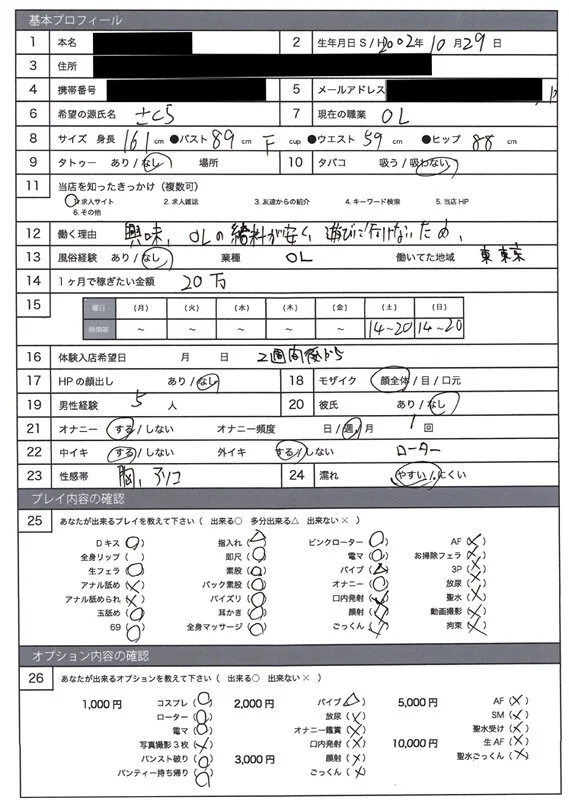 基本プロフィール
1 本名 2 生年月日 S / H 2002年 10月 29日
3 住所
4 携帯番号 5 メールアドレス
6 希望の源氏名 さくら 7 現在の職業 OL
8 サイズ 身長 161 cm ●バスト 89 cm F cup ●ウエスト 59 cm ●ヒップ 88 cm
9 タトゥー あり / なし 場所 10 タバコ 吸う / 吸わない
11 当店を知ったきっかけ(複数可)
1.求人サイト 2.求人雑誌 3.友達からの紹介 4.キーワード検索 5.当店HP
6.その他
12 働く理由 興味、OLの給料が安く、遊びに行けないため、
13 風俗経験 あり / なし 業種 OL 働いてた地域 東京
14 1ヶ月で稼ぎたい金額 20万
15 曜日 (月) (火) (水) (木) (金) (土) (日)
時間帯 ~ ~ ~ ~ ~ 14~20 14~20
16 体験入店希望日 月 日 2週間後から
17 HPの顔出し あり / なし 18 モザイク 顔全体 / 目 / 口元
19 男性経験 5 人 20 彼氏 あり / なし
21 オナニー する / しない オナニー頻度 日 / 週 / 月 1 回
22 中イキ する / しない 外イキ する / しない ローター
23 性感帯 胸、クリ 24 濡れ やすい / にくい
プレイ内容の確認
25 あなたが出来るプレイを教えて下さい( 出来る○ 多分出来る△ 出来ない× )
Dキス (○) 指入れ (△) ピンクローター (○) AF (×)
全身リップ ( ) 即尺 (○) 電マ (○) お掃除フェラ (×)
生フェラ (○) 素股 (○) バイブ (△) 3P (×)
アナル舐め (×) バック素股 (○) オナニー (○) 放尿 (×)
アナル舐められ (×) パイズリ (○) 口内発射 (×) 聖水 (×)
玉舐め (○) 耳かき (○) 顔射 (×) 動画撮影 (×)
69 (○) 全身マッサージ (○) ごっくん (×) 拘束 (×)
オプション内容の確認
26 あなたが出来るオプションを教えて下さい( 出来る○ 出来ない× )
1,000円 コスプレ (○) 2,000円 バイブ (△) 5,000円 AF (×)
ローター (○) 放尿 (×) SM (×)
電マ (○) オナニー鑑賞 (×) 聖水受け (×)
写真撮影3枚 (×) 口内発射 (×) 10,000円 生AF (×)
パンスト破り (○) 3,000円 顔射 (×) 聖水ごっくん (×)
パンティー持ち帰り (○) ごっくん (×)